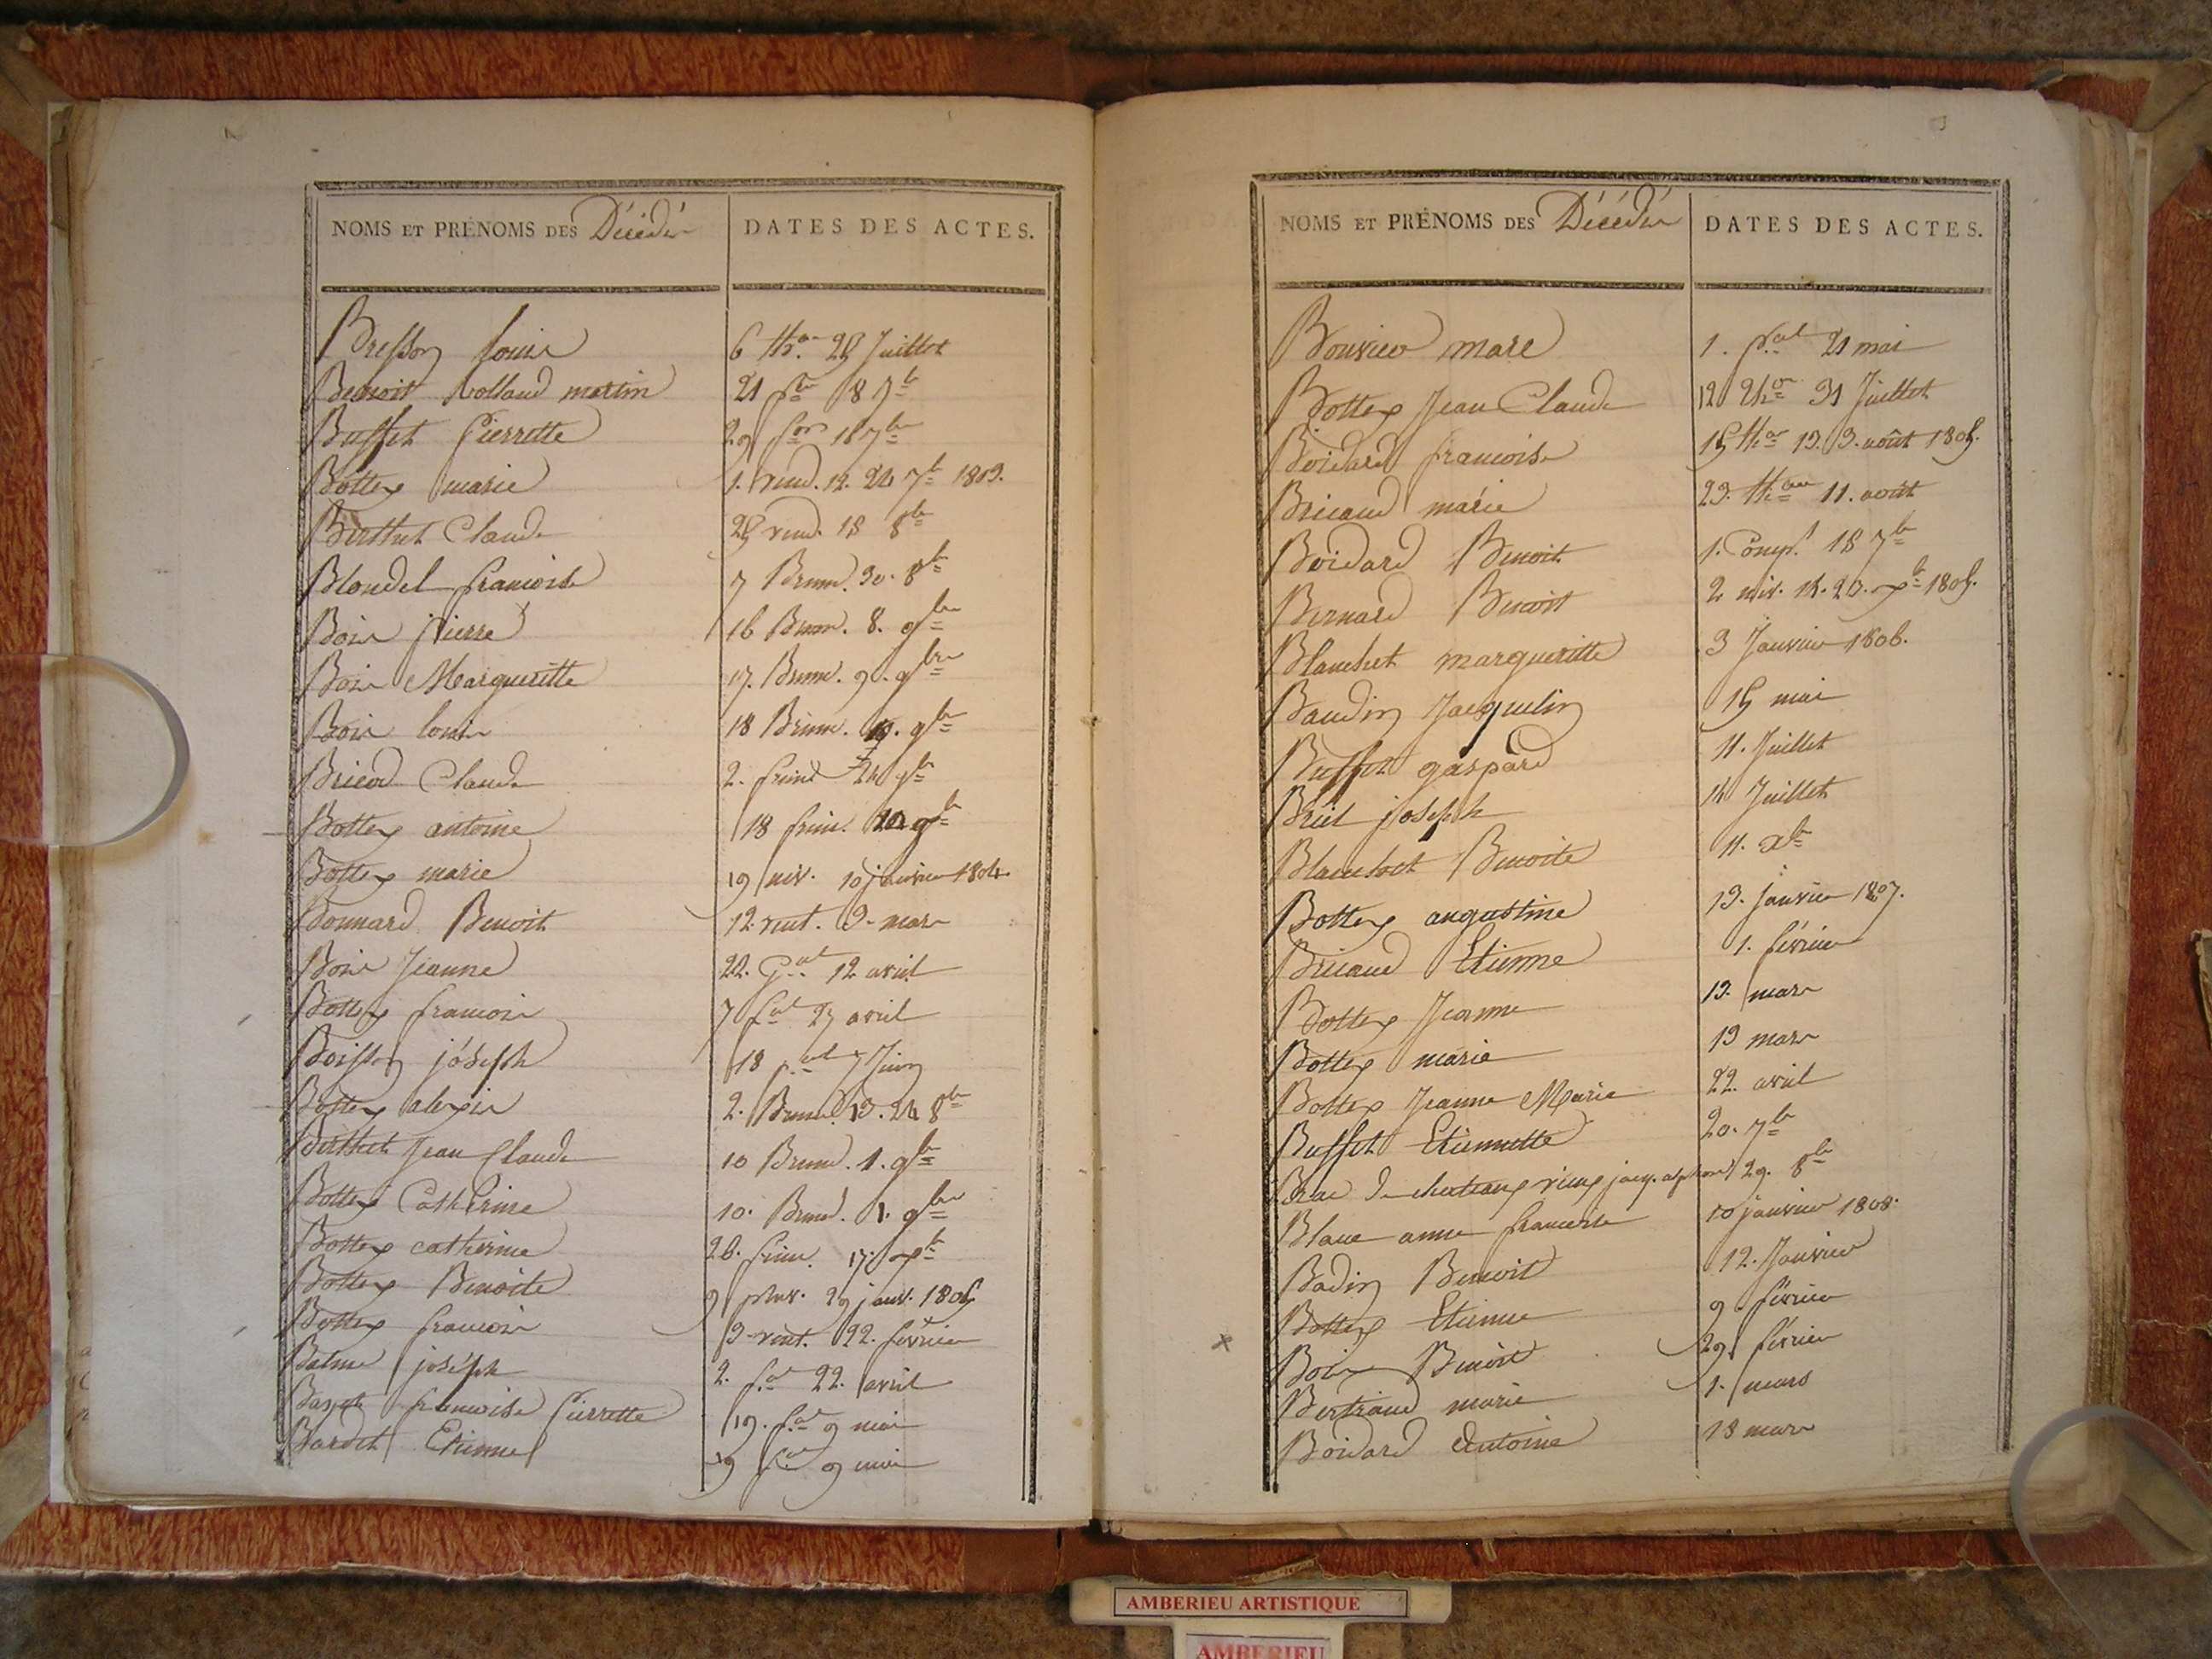 NOMS ET PRÉNOMS DES Décédés DATES DES ACTES.
Bresson louis 6 th.or 25 Juillet
Benoit Rolland martin 21 8 7.bre
Buffet Pierrette 29 f.or 16 7.bre
Bottex marie 1. vend. 12. 24 7.bre 1803.
Berthet Claude 25 vend. 18 8.bre
Blondel francoise 7 Brum. 30. 8.bre
Bois pierre 16 Brum. 8. 9.bre
Bois Margueritte 17. Brum. 9. 9.bre
Bois louis 18 Brum. 10. 9.bre
Bricod Claude 2. frim. 24 9.bre
Bottex antoine 18 frim.
Bottex marie 19 niv. 10 janvier 1804.
Bonnard Benoit 12. vent. 3. mars
Bois Jeanne 22. G.al 12 avril
Bottex francois 7 f.al 27 avril
Boisson joseph 18 p.al 7 Juin
Bottex alexis 2. Brum. 13. 24 8.bre
Berthet Jean Claude 10 Brum. 1. 9.bre
Bottex Catherine 10. Brum. 1. 9.bre
Bottex catherine 26. frim. 17. x.bre
Bottex Benoite 9 pluv. 29 janv. 1805
Bottex francois 3 vent. 22. février
Balme joseph 2. f.al 22. avril
francoise Pierrette 19. f.al 9 mai
Bardet Etienne 19 f.al 9 mai
NOMS ET PRÉNOMS DES Décédés DATES DES ACTES.
Bouvier marc 1. p.al 21 mai
Bottex Jean Claude 12 th.or 31 Juillet
Boidard francoise 15 th.or 13. 3. août 1805.
Bricaud marie 23. th.or 11. août
Boidard Benoit 1. Comp.t 18 7.bre
Bernard Benoit 2 niv. 14. 23. x.bre 1805.
Blanchet margueritte 3 Janvier 1806.
Baudin Jacquelin 15 mai
Buffet gaspard 11. Juillet
Bruet joseph 14 Juillet
Blanchet Benoite 11. x.bre
Bottex augustine 13. janvier 1807.
Bricaud Etienne 1. février
Bottex Jeanne 13. mars
Bottex marie 19 mars
Bottex Jeanne Marie 22. avril
Buffet Etiennette 20. 7.bre
Brac de chateauvieux jacq. alphons 29. 8.bre
Blanc anne francoise 10 janvier 1808.
Badin Benoit 12. Janvier
Bottex Etienne 9 février
Bois Benoit 29 février
Bertrand marie 1. mars
Boidard Antoine 18 mars
AMBERIEU ARTISTIQUE
AMBERIEU